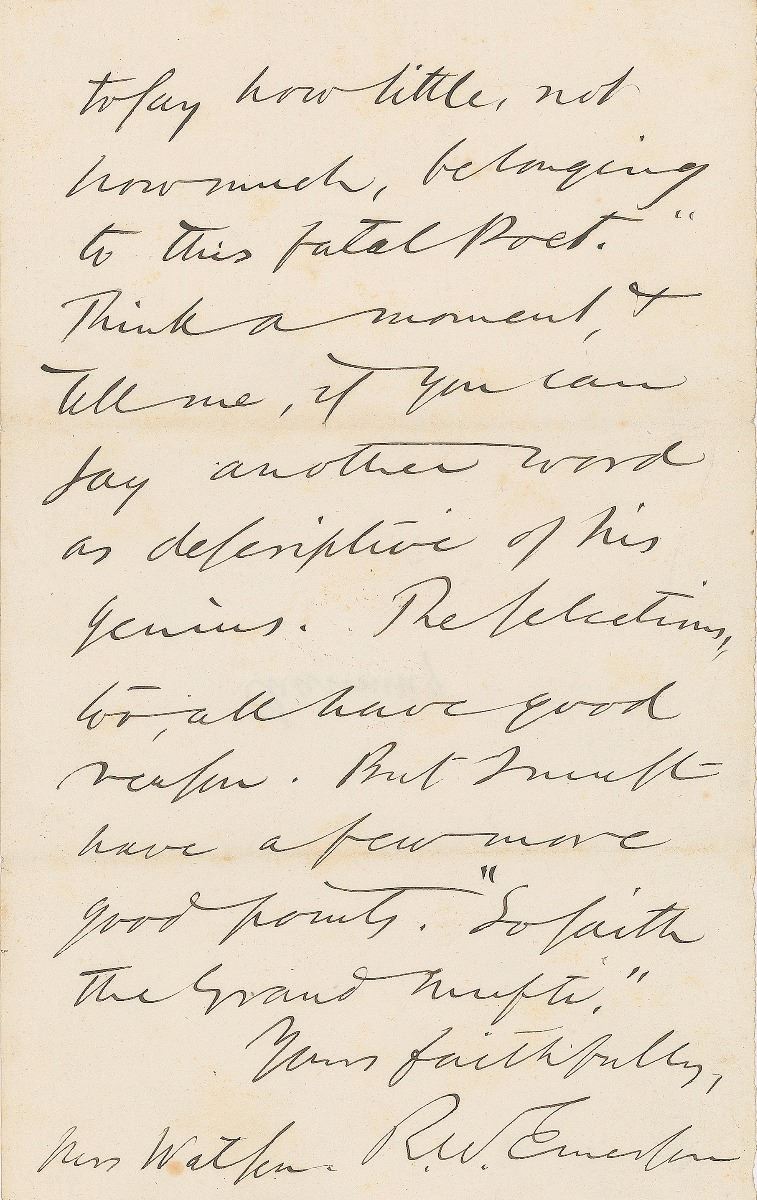 to say how little, not
how much, belonging
to this fatal Poet."
Think a moment, &
tell me, if you can
say another word
as descriptive of his
genius. The selections,
too, all have good
reason. But I must
have a few more
good points. "So saith
the Grand Mufti."
Yours faithfully,
R. W. Emerson
Miss Watson.